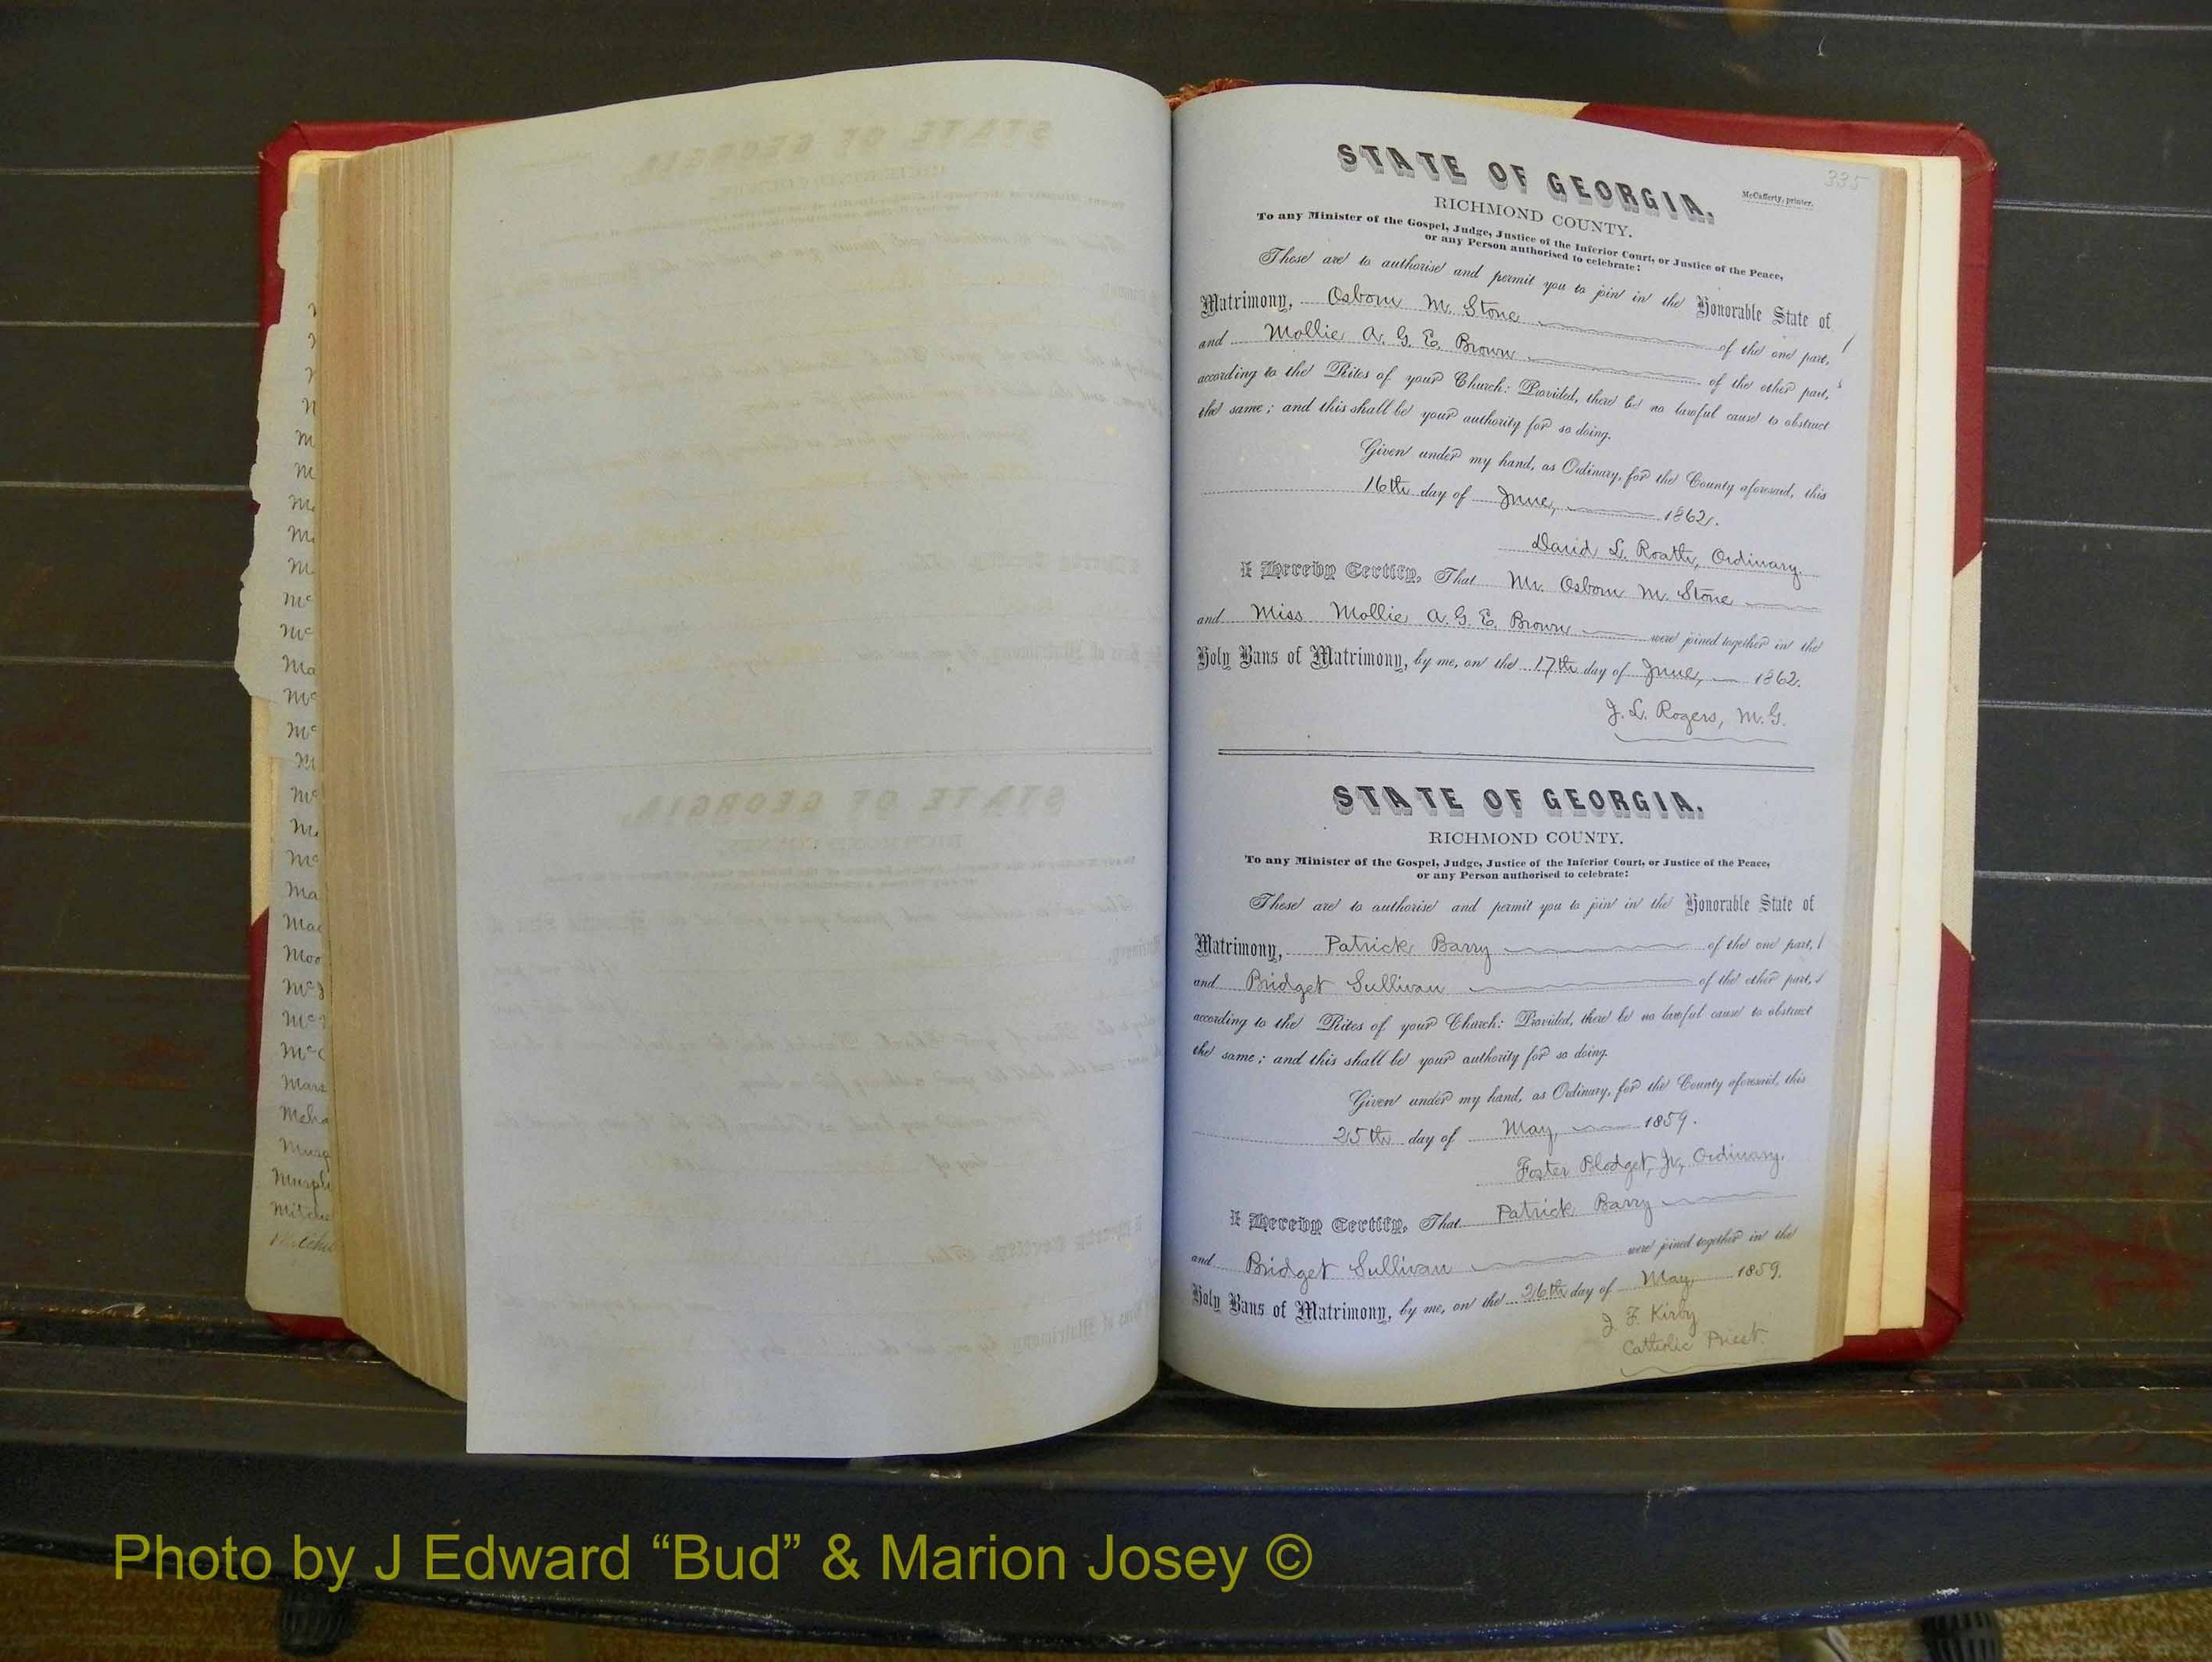 335
STATE OF GEORGIA.
McCafferty, printer.
RICHMOND COUNTY.
To any Minister of the Gospel, Judge, Justice of the Inferior Court, or Justice of the Peace,
or any Person authorised to celebrate:
These are to authorise and permit you to join in the Honorable State of
Matrimony, Osborn M. Stone of the one part,
and Mollie A. G. E. Brown of the other part,
according to the Rites of your Church: Provided, there be no lawful cause to obstruct
the same; and this shall be your authority for so doing.
Given under my hand, as Ordinary, for the County aforesaid, this
16th day of June, 1862.
David L. Roath, Ordinary.
I Hereby Certify, That Mr. Osborn M. Stone
and Miss Mollie A. G. E. Brown were joined together in the
Holy Bans of Matrimony, by me, on the 17th day of June, 1862.
J. L. Rogers, M. G.
STATE OF GEORGIA.
RICHMOND COUNTY.
To any Minister of the Gospel, Judge, Justice of the Inferior Court, or Justice of the Peace,
or any Person authorised to celebrate:
These are to authorise and permit you to join in the Honorable State of
Matrimony, Patrick Barry of the one part,
and Bridget Sullivan of the other part,
according to the Rites of your Church: Provided, there be no lawful cause to obstruct
the same; and this shall be your authority for so doing.
Given under my hand, as Ordinary, for the County aforesaid, this
25th day of May, 1859.
Foster Blodget, Jr, Ordinary.
I Hereby Certify, That Patrick Barry
and Bridget Sullivan were joined together in the
Holy Bans of Matrimony, by me, on the 26th day of May 1859.
J. F. Kirby
Catholic Priest.
Photo by J Edward “Bud” & Marion Josey ©